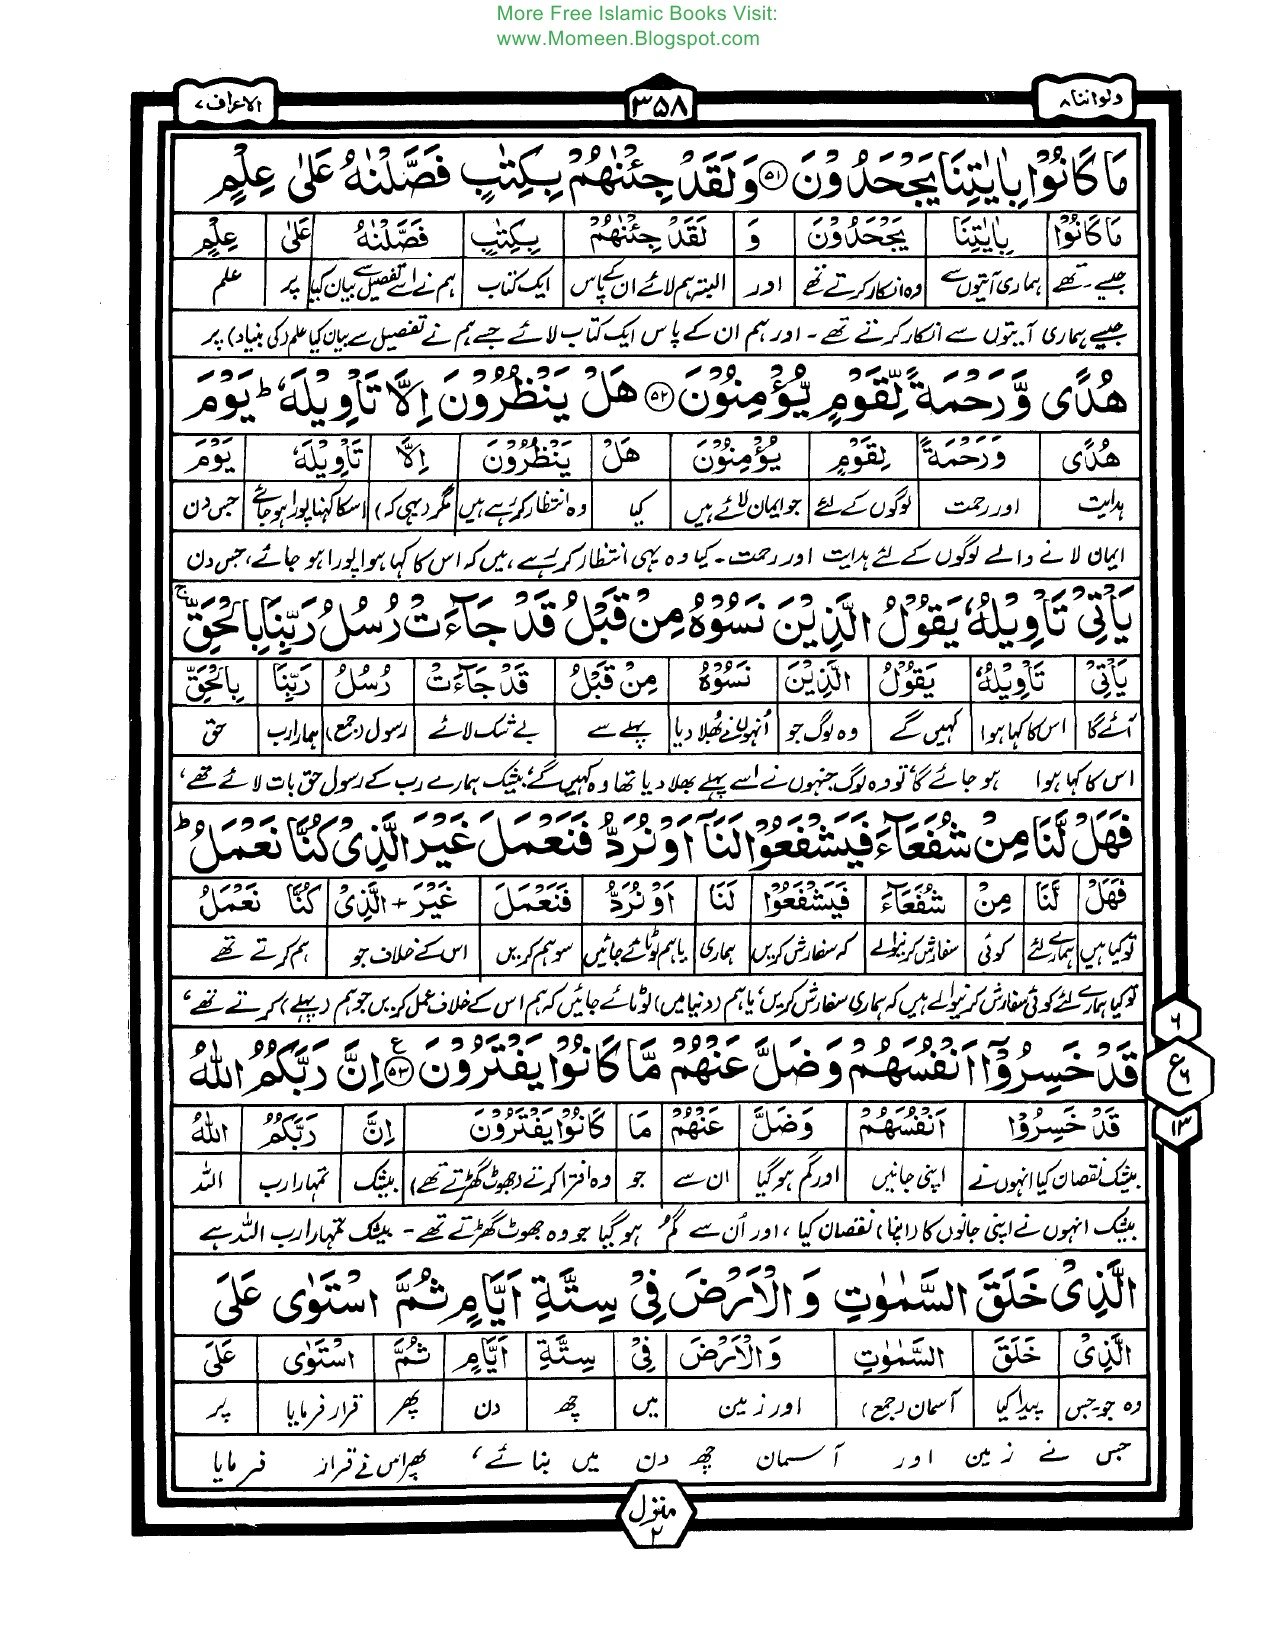 More Free Islamic Books Visit:
www.Momeen.Blogspot.com
ولواننا ۸
۳۵۸
الاعراف ۷
مَا كَانُوْا بِاٰيٰتِنَا يَجْحَدُوْنَ ﴿۵۱﴾ وَلَقَدْ جِئْنٰهُمْ بِكِتٰبٍ فَصَّلْنٰهُ عَلٰى عِلْمٍ
مَا كَانُوْا بِاٰيٰتِنَا يَجْحَدُوْنَ وَ لَقَدْ جِئْنٰهُمْ بِكِتٰبٍ فَصَّلْنٰهُ عَلٰى عِلْمٍ
جیسے۔تھے ہماری آیتوں سے وہ انکار کرتے تھے اور البتہ ہم لائے ان کے پاس ایک کتاب ہم نے اسے تفصیل سے بیان کیا پر علم
جیسے ہماری آیتوں سے انکار کرتے تھے۔ اور ہم ان کے پاس ایک کتاب لائے جسے ہم نے تفصیل سے بیان کیا علم (کی بنیاد) پر
هُدًى وَّرَحْمَةً لِّقَوْمٍ يُّؤْمِنُوْنَ ﴿۵۲﴾ هَلْ يَنْظُرُوْنَ اِلَّا تَاْوِيْلَهٗ ؕ يَوْمَ
هُدًى وَرَحْمَةً لِقَوْمٍ يُؤْمِنُوْنَ هَلْ يَنْظُرُوْنَ اِلَّا تَاْوِيْلَهٗ يَوْمَ
ہدایت اور رحمت لوگوں کے لئے جو ایمان لائے ہیں کیا وہ انتظار کر رہے ہیں مگر (یہی کہ) اسکا کہنا پورا ہو جائے جس دن
ایمان لانے والے لوگوں کے لئے ہدایت اور رحمت۔ کیا وہ یہی انتظار کر رہے ہیں کہ اس کا کہا ہوا پورا ہو جائے، جس دن
يَاْتِيْ تَاْوِيْلُهٗ يَقُوْلُ الَّذِيْنَ نَسُوْهُ مِنْ قَبْلُ قَدْ جَآءَتْ رُسُلُ رَبِّنَا بِالْحَقِّ ۚ
يَاْتِيْ تَاْوِيْلُهٗ يَقُوْلُ الَّذِيْنَ نَسُوْهُ مِنْ قَبْلُ قَدْ جَآءَتْ رُسُلُ رَبِّنَا بِالْحَقِّ
آئے گا اس کا کہا ہوا کہیں گے وہ لوگ جو اُنہوں نے بُھلا دیا پہلے سے بے شک لائے رسول (جمع) ہمارا رب حق
اس کا کہا ہوا ہو جائے گا تو وہ لوگ جنہوں نے اسے پہلے بھلا دیا تھا وہ کہیں گے، بیشک ہمارے رب کے رسول حق بات لائے تھے،
فَهَلْ لَّنَا مِنْ شُفَعَآءَ فَيَشْفَعُوْا لَنَآ اَوْ نُرَدُّ فَنَعْمَلَ غَيْرَ الَّذِيْ كُنَّا نَعْمَلُ ؕ
فَهَلْ لَّنَا مِنْ شُفَعَآءَ فَيَشْفَعُوْا لَنَا اَوْ نُرَدُّ فَنَعْمَلَ غَيْرَ + الَّذِيْ كُنَّا نَعْمَلُ
تو کیا ہیں ہمارے لئے کوئی سفارش کرنیوالے کہ سفارش کریں ہماری یا ہم لوٹائے جائیں سو ہم کریں اس کے خلاف جو ہم کرتے تھے
تو کیا ہمارے لئے کوئی سفارش کرنیوالے ہیں کہ ہماری سفارش کریں، یا ہم (دنیا میں) لوٹائے جائیں کہ ہم اس کے خلاف عمل کریں جو ہم (پہلے) کرتے تھے،
قَدْ خَسِرُوْٓا اَنْفُسَهُمْ وَضَلَّ عَنْهُمْ مَّا كَانُوْا يَفْتَرُوْنَ ﴿۵۳﴾ ع اِنَّ رَبَّكُمُ اللّٰهُ
قَدْ خَسِرُوْا اَنْفُسَهُمْ وَضَلَّ عَنْهُمْ مَا كَانُوْا يَفْتَرُوْنَ اِنَّ رَبَّكُمُ اللّٰهُ
بیشک نقصان کیا انہوں نے اپنی جانیں اور گم ہو گیا ان سے جو وہ افترا کرتے (جھوٹ گھڑتے تھے) بیشک تمہارا رب اللہ
بیشک انہوں نے اپنی جانوں کا (اپنا) نقصان کیا، اور اُن سے گم ہو گیا جو وہ جھوٹ گھڑتے تھے۔ بیشک تمہارا رب اللہ ہے
الَّذِيْ خَلَقَ السَّمٰوٰتِ وَالْاَرْضَ فِيْ سِتَّةِ اَيَّامٍ ثُمَّ اسْتَوٰى عَلَى
الَّذِيْ خَلَقَ السَّمٰوٰتِ وَالْاَرْضَ فِيْ سِتَّةِ اَيَّامٍ ثُمَّ اسْتَوٰى عَلَى
وہ جو۔جس پیدا کیا آسمان (جمع) اور زمین میں چھ دن پھر قرار فرمایا پر
جس نے زمین اور آسمان چھ دن میں بنائے، پھر اس نے قرار فرمایا
۶
ع ۶
۱۳
منزل ۲